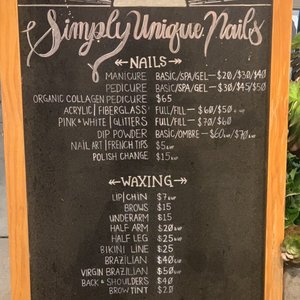 Simply Unique Nails
NAILS
MANICURE BASIC/SPA/GEL — $20/$30/$40
PEDICURE BASIC/SPA/GEL — $30/$45/$50
ORGANIC COLLAGEN PEDICURE $65
ACRYLIC | FIBERGLASS FULL/FILL — $60/$50
PINK & WHITE | GLITTERS FULL/FILL — $70/$60
DIP POWDER BASIC/OMBRE — $60/$70
NAIL ART | FRENCH TIPS $5
POLISH CHANGE $15
WAXING
LIP/CHIN $7
BROWS $15
UNDERARM $15
HALF ARM $20
HALF LEG $25
BIKINI LINE $25
BRAZILIAN $40
VIRGIN BRAZILIAN $50
BACK & SHOULDERS $40
BROW TINT $20